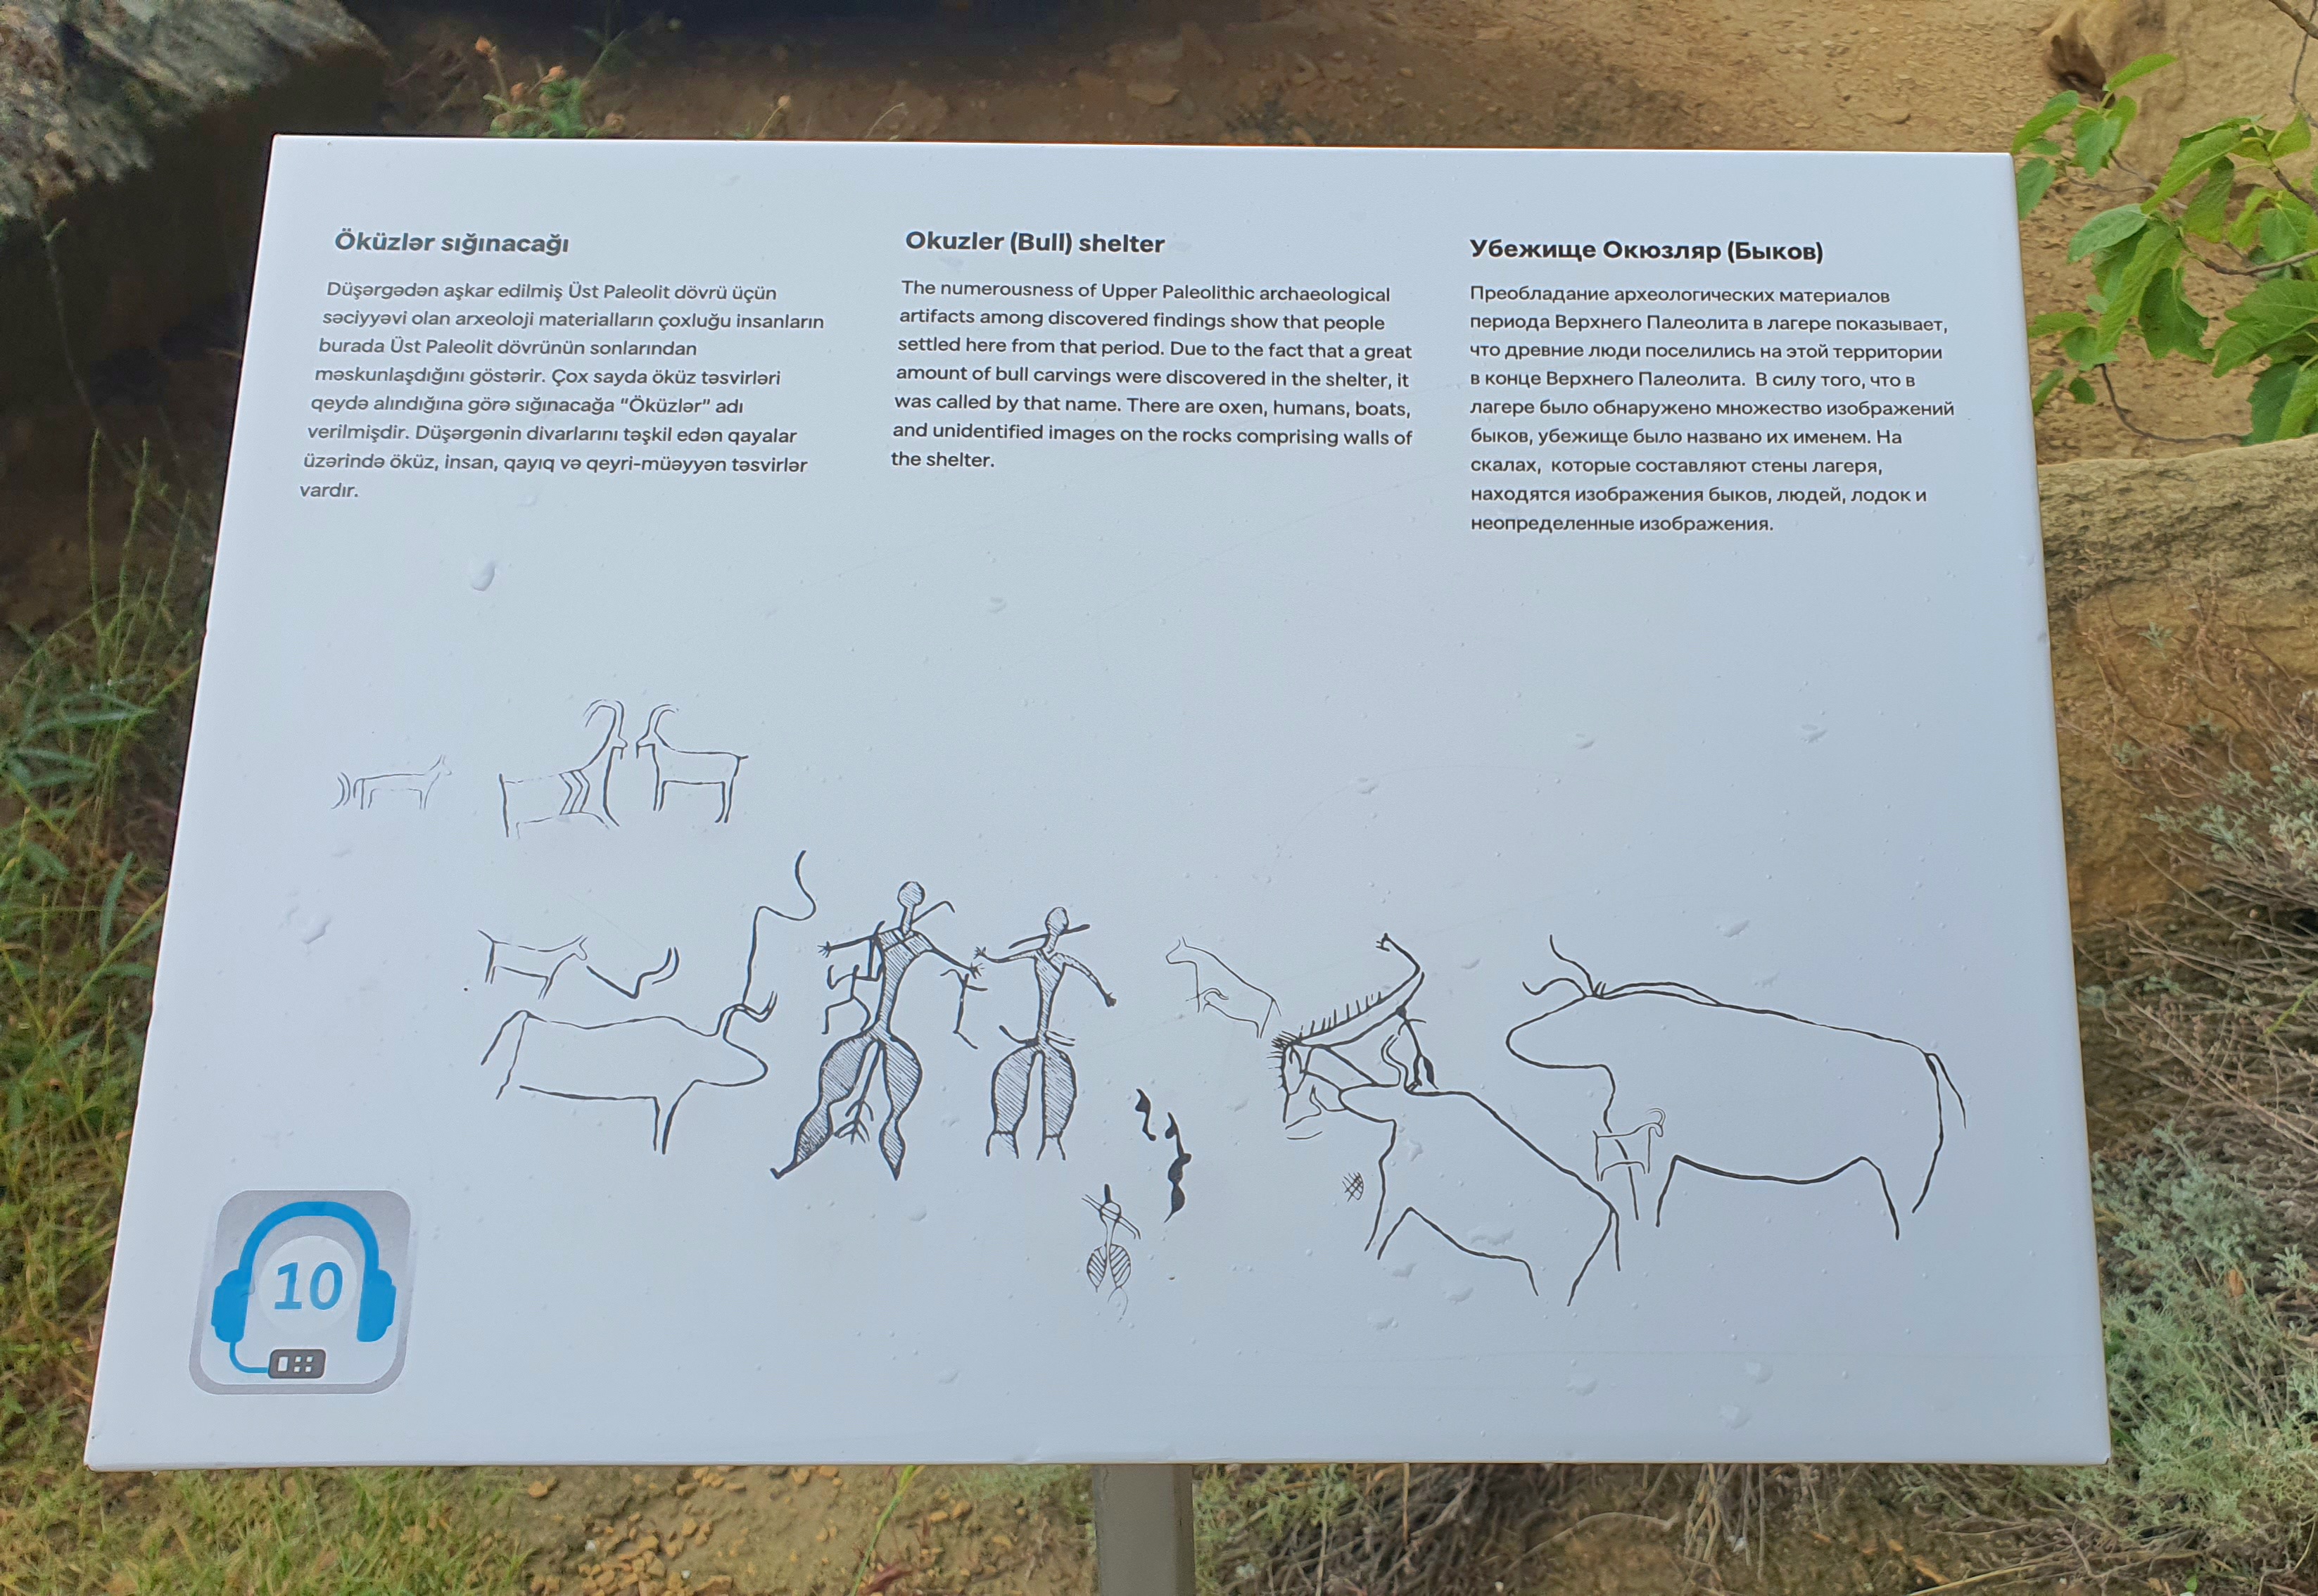 Öküzlər sığınacağı
Düşərgədən aşkar edilmiş Üst Paleolit dövrü üçün
səciyyəvi olan arxeoloji materialların çoxluğu insanların
burada Üst Paleolit dövrünün sonlarından
məskunlaşdığını göstərir. Çox sayda öküz təsvirləri
qeydə alındığına görə sığınacağa "Öküzlər" adı
verilmişdir. Düşərgənin divarlarını təşkil edən qayalar
üzərində öküz, insan, qayıq və qeyri-müəyyən təsvirlər
vardır.
Okuzler (Bull) shelter
The numerousness of Upper Paleolithic archaeological
artifacts among discovered findings show that people
settled here from that period. Due to the fact that a great
amount of bull carvings were discovered in the shelter, it
was called by that name. There are oxen, humans, boats,
and unidentified images on the rocks comprising walls of
the shelter.
Убежище Окюзляр (Быков)
Преобладание археологических материалов
периода Верхнего Палеолита в лагере показывает,
что древние люди поселились на этой территории
в конце Верхнего Палеолита. В силу того, что в
лагере было обнаружено множество изображений
быков, убежище было названо их именем. На
скалах, которые составляют стены лагеря,
находятся изображения быков, людей, лодок и
неопределенные изображения.
10